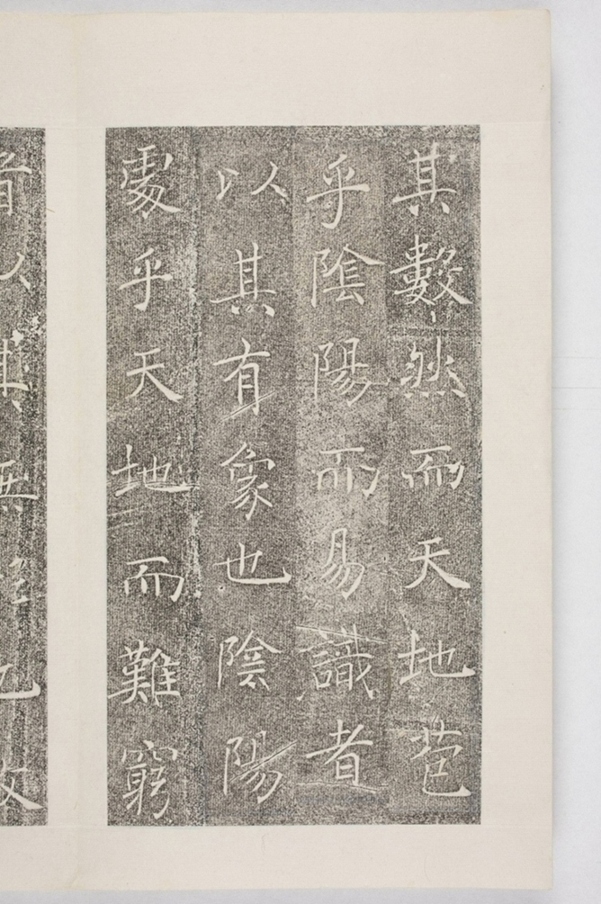 其數然而天地苞
乎陰陽而易識者
以其有象也陰陽
處乎天地而難窮
者以其無形也故